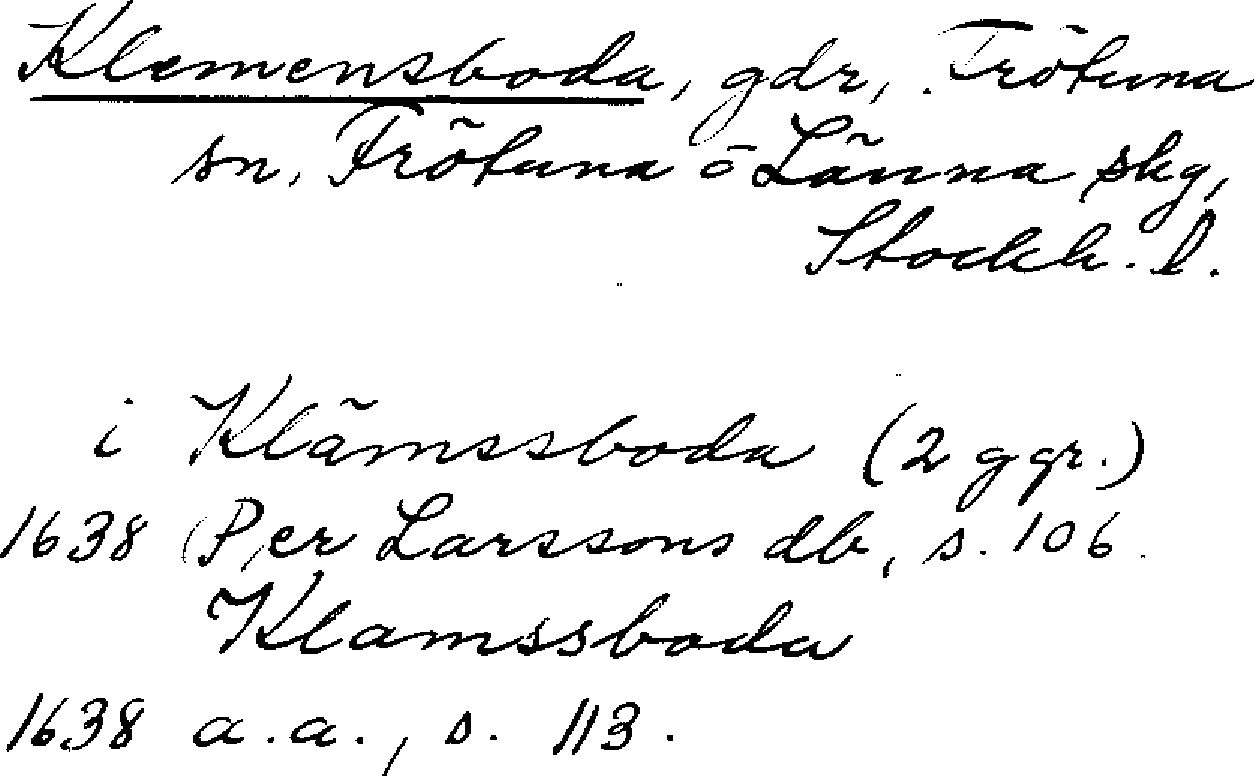 Klemensboda, gdr, Frötuna
sn, Frötuna o Länna skg,
Stockh. l.
i Klämssboda (2 ggr.)
1638 Per Larssons db, s. 106.
Klamssboda
1638 a.a., s. 113.